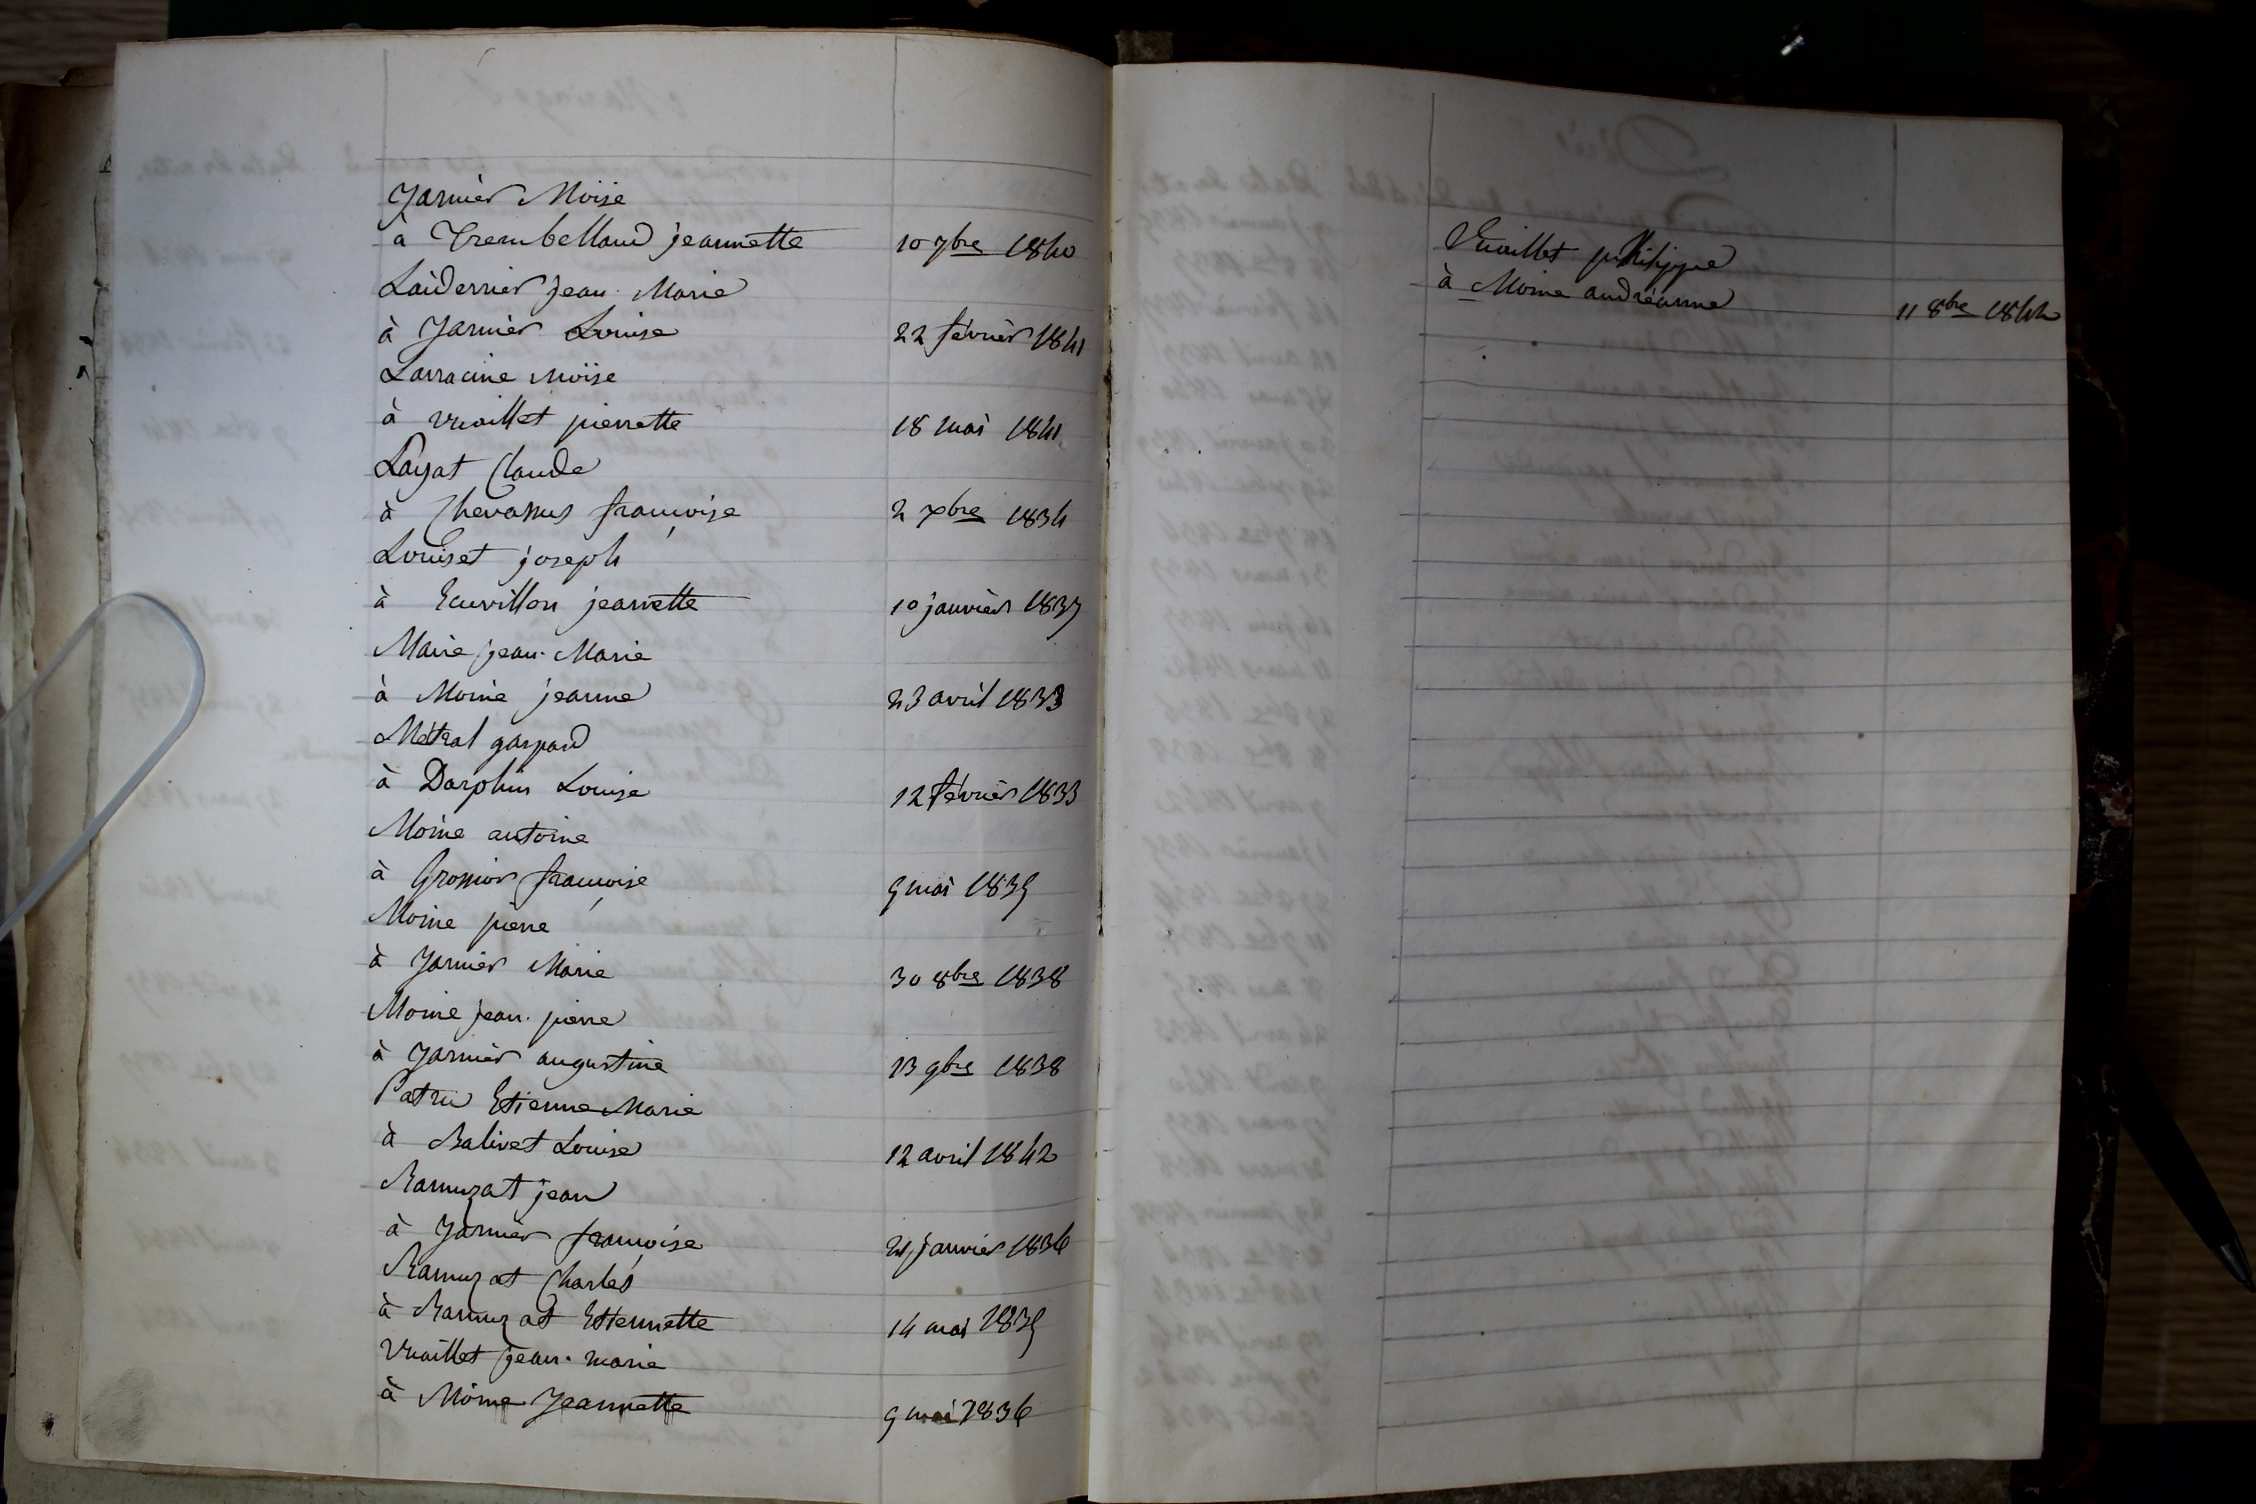 Janier Moïse
à Trembellaud jeannette 10 7bre 1840
Laidernier Jean-Marie
à Janier Louise 22 février 1841
Larracine Moïse
à Vuaillet pierrette 18 mai 1841
Layat Claude
à Chevassus françoise 2 xbre 1834
Louiset joseph
à Ecuvillon jeanette 10 janvier 1837
Maire Jean-Marie
à Moine jeanne 23 avril 1833
Métral gaspard
à Darphin Louise 12 février 1833
Moine antoine
à Grosnior françoise 9 mai 1839
Moine pierre
à Janier Marie 30 8bre 1838
Moine Jean-pierre
à Janier augustine 13 9bre 1838
Patru Etienne Marie
à Balivet Louise 12 avril 1842
Ramuzat jean
à Janier françoise 21 janvier 1836
Ramuzat Charles
à Ramuzat Etiennette 14 mai 1839
Vuaillet Jean-marie
à Moine Jeannette 9 mai 1836
Vuaillet philippe
à Moine andréanne 11 8bre 1842